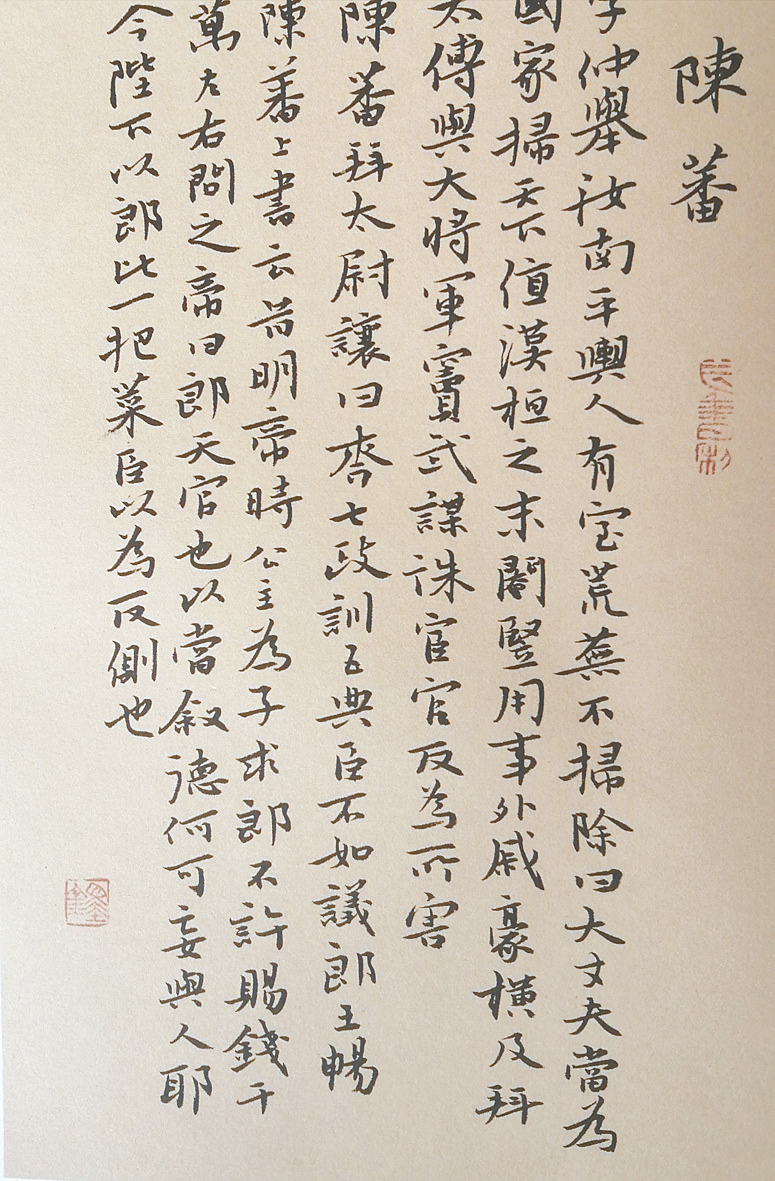 陳蕃
字仲舉汝南平輿人有室荒蕪不掃除曰大丈夫當為
國家掃天下值漢桓之末閹豎用事外戚豪橫及拜
太傅與大將軍竇武謀誅宦官反為所害
陳蕃拜太尉讓曰齊七政訓五典臣不如議郎王暢
陳蕃上書云昔明帝時公主為子求郎不許賜錢千
萬左右問之帝曰郎天官也以當叙德何可妄與人耶
今陛下以郎比一把菜臣以為反側也